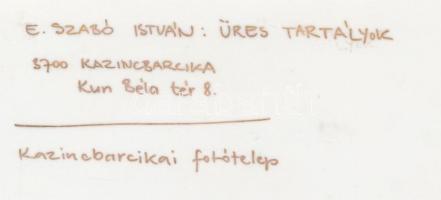 E. SZABÓ ISTVÁN: ÜRES TARTÁLYOK
3700 KAZINCBARCIKA
Kun Béla tér 8.
Kazincbarcikai fotótelep